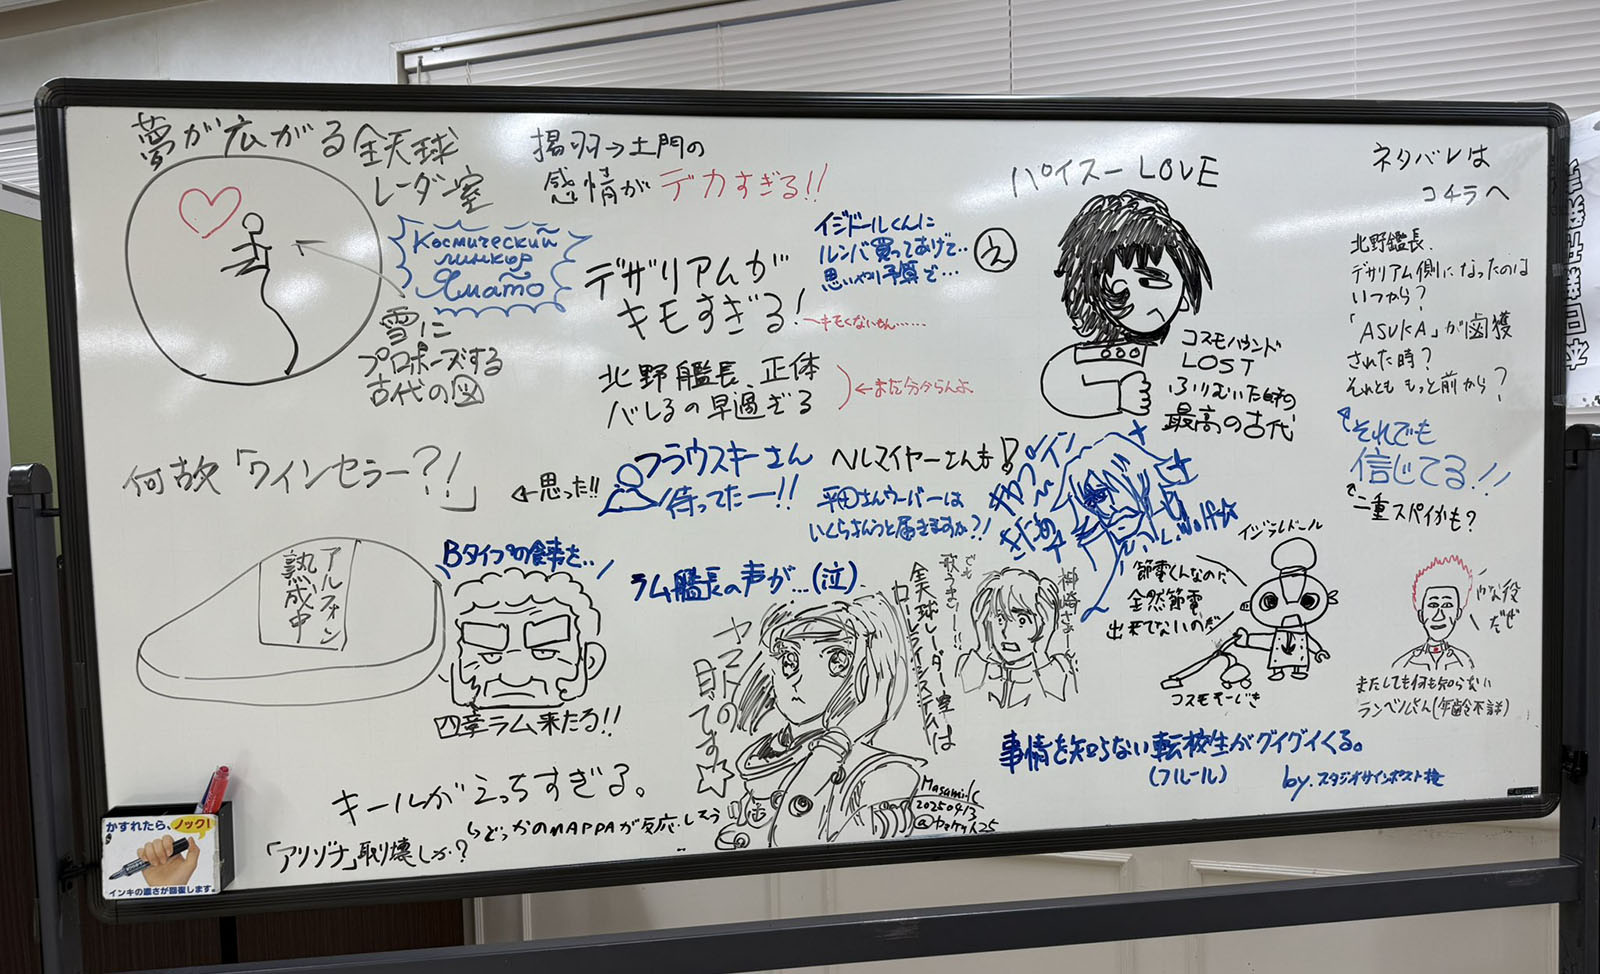 夢が広がる全天球
レーダー室
Космический
линкор
Ямато
雪に
プロポーズする
古代の図
揚羽→土門の
感情がデカすぎる!!
デザリアムが
キモすぎる!
←キモくないもん……
イジドールくんに
ルンバ買ってあげて‥
思いやり予算で…
え
北野艦長、正体
バレるの早過ぎる
←まだ分からんよ
パイスーLOVE
コスモハウンド
LOST
ふりむいた時の
最高の古代
ネタバレは
コチラへ
北野艦長、
デザリアム側になったのは
いつから?
「ASUKA」が鹵獲
された時?
それとももっと前から?
それでも
信じてる!!
二重スパイかも?
何故「ワインセラー?!」
←思った!!
フラウスキーさん
待ってたー!!
ヘルマイヤーさんも!?
平田さんウーバーは
いくらはらうと届きますか?!
アルフォン
熟成中
Bタイプの食事を‥
四章ラム来たる!!
ラム艦長の声が…(泣)
ヤマトの
眼です☆
全天球レーダー室は
ローレライシステム
でも
歌うまさ!!
柳崎さぁーん
イジドール
節電くんなのに
全然節電
出来てないのだ
コスモそーじき
な役
だぜ
またしても何も知らない
ランベルさん(年齢不詳)
事情を知らない転校生がグイグイくる。
(フルール)
by.スタジオサインポスト様
キールがえっちすぎる。
↳どっかのMAPPAが反応しそう
「アリゾナ」取り壊しか?
Masami.C
20250413
@ヤマケット25
かすれたら、ノック!
インキの濃さが回復します。